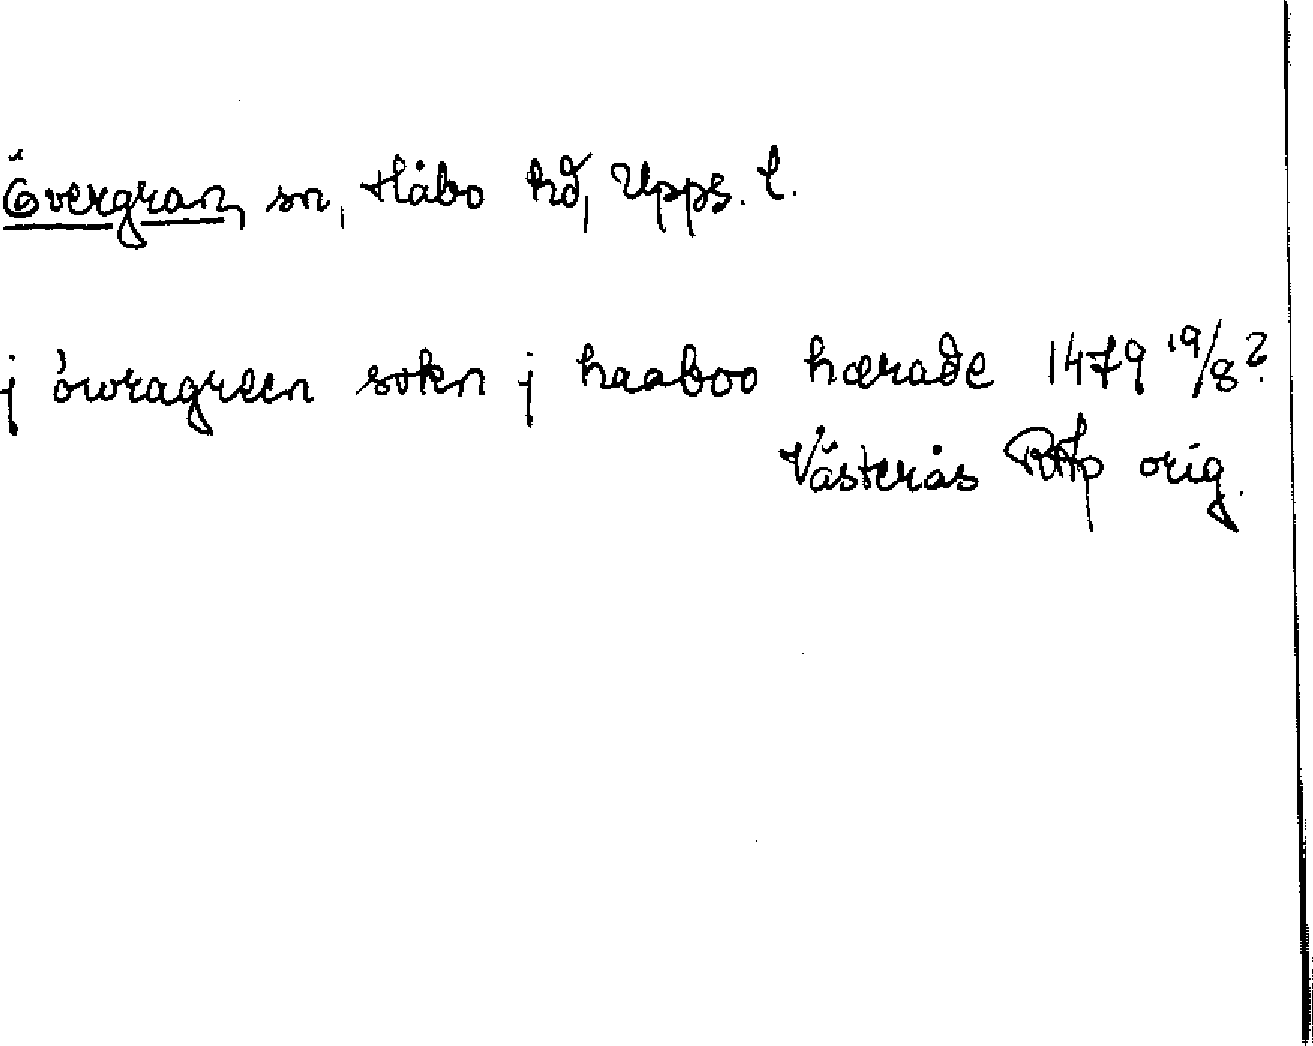 Övergran, sn, Håbo hd, Upps. l.
j öwragreen sokn j haaboo hærade 1479 19/8?
Västerås RAp orig.